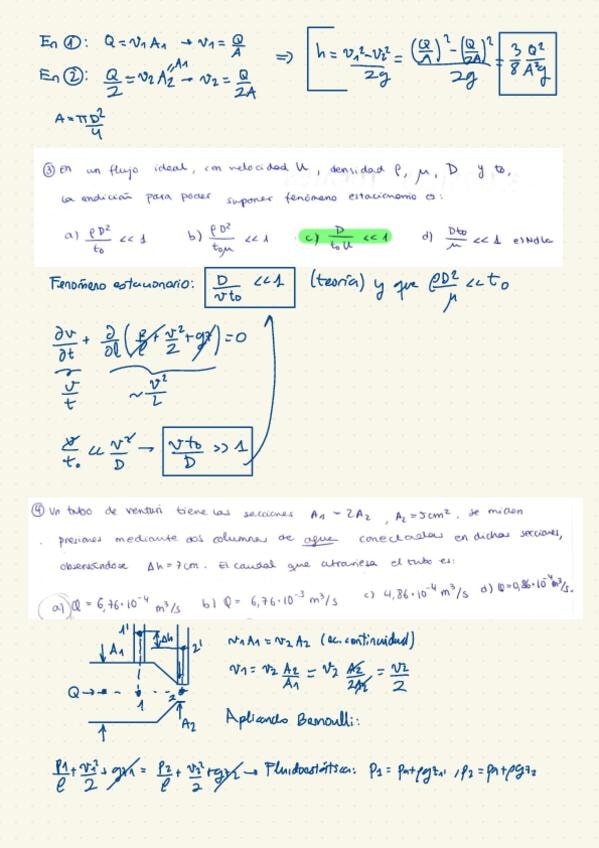 En ①: Q = v₁A₁ → v₁ = Q/A
⇒ h = (v₁² - v₂²)/2g = ((Q/A)² - (Q/2A)²)/2g = 3/8 Q²/A²g
En ②: Q/2 = v₂A₂ → v₂ = Q/2A
A₁
A = πD²/4
③ En un flujo ideal, con velocidad U, densidad ρ, μ, D y to,
la condición para poder suponer fenómeno estacionario es:
a) ρD²/to << 1 b) ρD²/toμ << 1 c) D/toU << 1 d) Dto/μ << 1 e) Ndla
Fenómeno estacionario: D/vto << 1 (teoría) y que ρD²/μ << to
∂v/∂t + ∂/∂l (p/ρ + v²/2 + gz) = 0
v/t ~ v²/2
v/to << v²/D → vto/D >> 1
④ Un tubo de venturi tiene las secciones A₁ = 2A₂, A₂ = 5cm². Se miden
presiones mediante dos columnas de agua conectadas en dichas secciones,
observándose Δh = 7cm. El caudal que atraviesa el tubo es:
a) Q = 6,76·10⁻⁴ m³/s b) Q = 6,76·10⁻³ m³/s c) 4,86·10⁻⁴ m³/s d) Q=0,86·10⁻⁴ m³/s.
1' Δh 2'
A₁
Q → 1 2
A₂
v₁A₁ = v₂A₂ (ec. continuidad)
v₁ = v₂ A₂/A₁ = v₂ A₂/2A₂ = v₂/2
Aplicando Bernoulli:
p₁/ρ + v₁²/2 + gz₁ = p₂/ρ + v₂²/2 + gz₂ → Fluidoestática: p₁ = pa + ρgz₁', p₂ = pa + ρgz₂